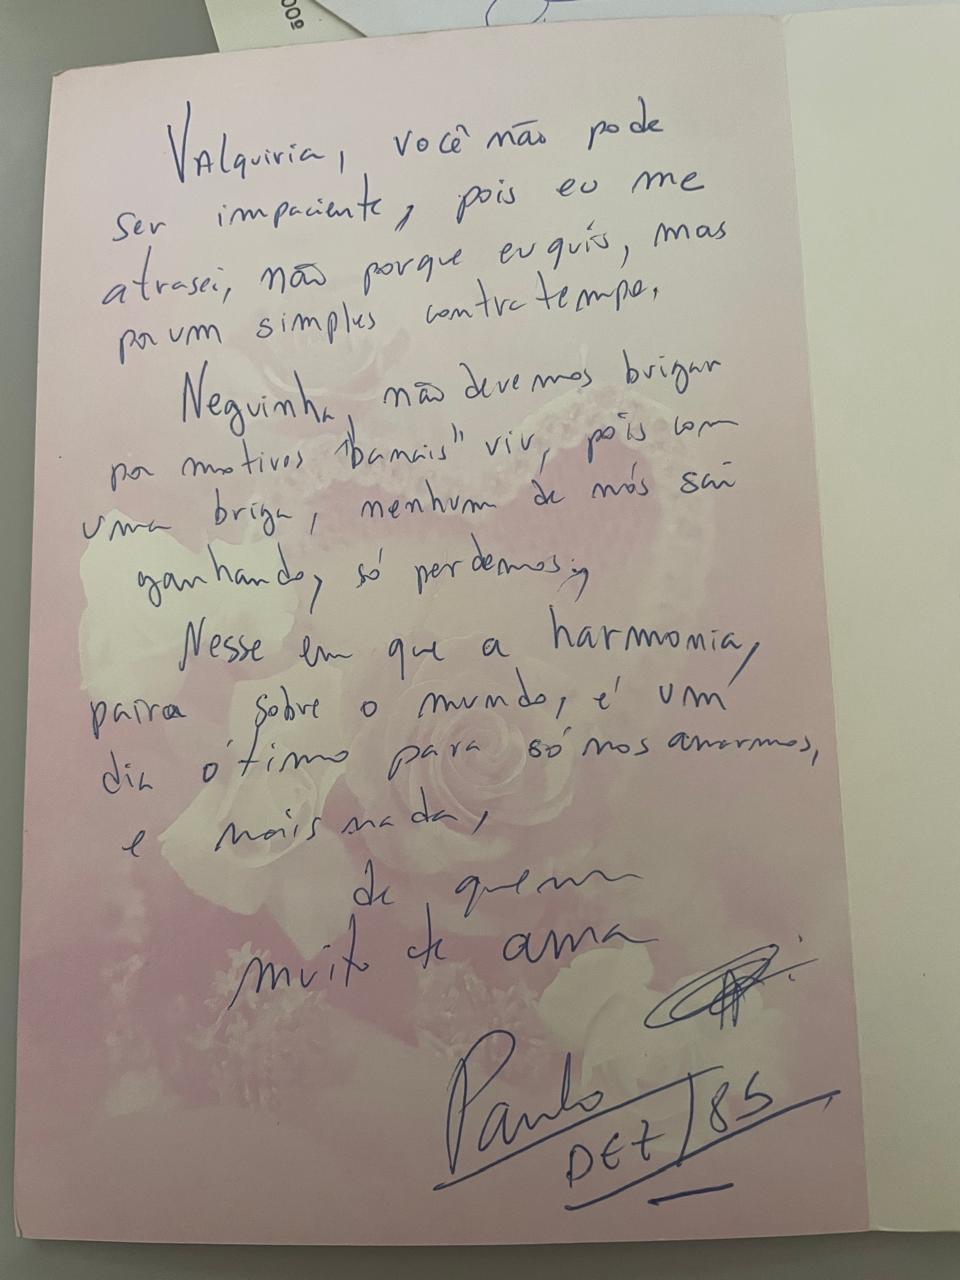 00º
VAlquiria, você não pode
ser impaciente, pois eu me
atrasei, não porque eu quis, mas
por um simples contratempo.
Neguinha, não devemos brigar
por motivos "bamais" viv, pois com
uma briga, nenhum de nós sai
ganhando, só perdemos,
Nesse em que a harmonia,
paira sobre o mundo, é um
dia ótimo para só nos amarmos,
e mais nada,
de quem
muito te ama
Paulo
DEZ/85